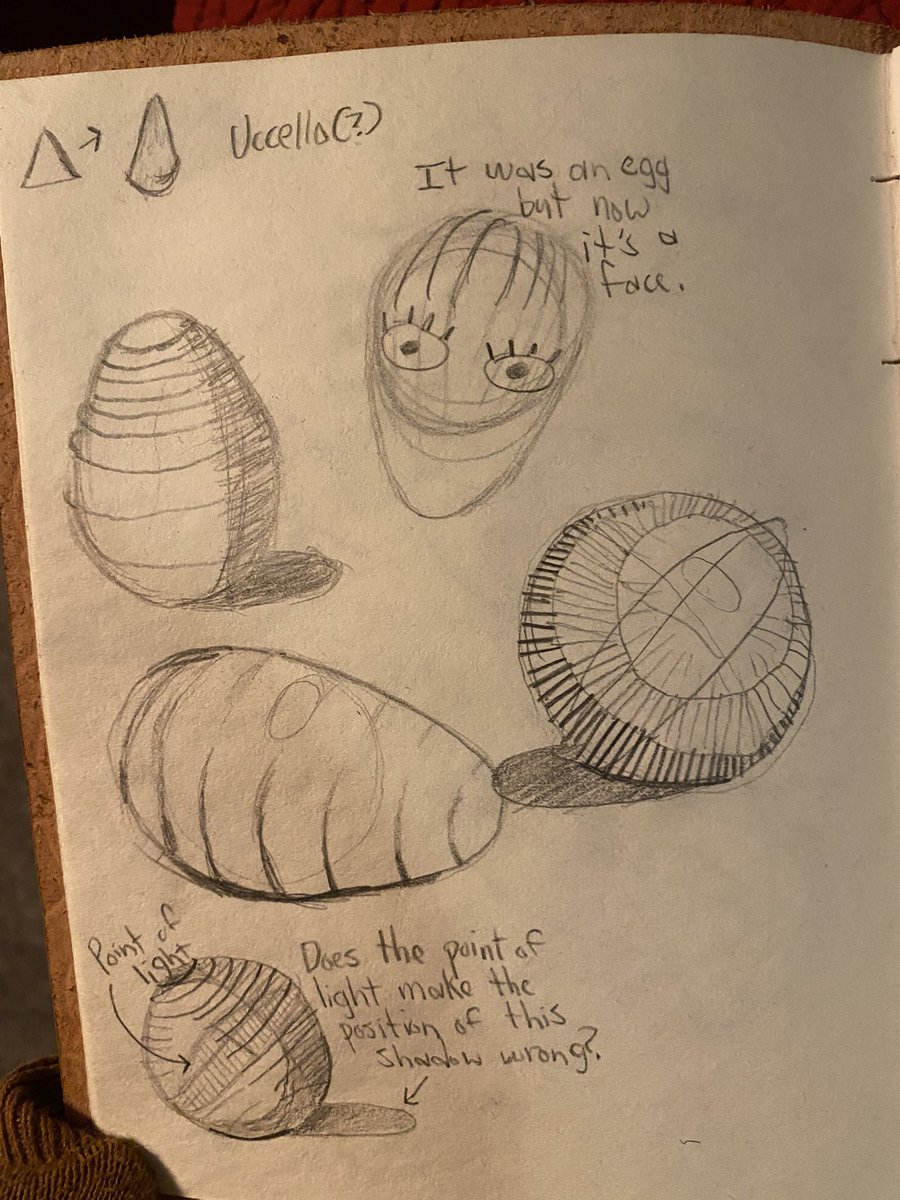 Uccello(?)
It was an egg
but now
it's a
face.
Point of
light
Does the point of
light make the
position of this
shadow wrong?